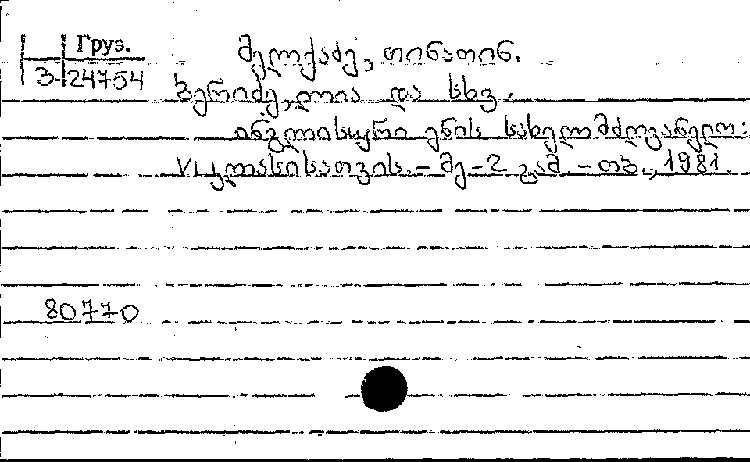 Груз.
3-24754
მელქაძე, თინათინ.
ბერიძე, ლია და სხვ.
ინგლისური ენის სახელმძღვანელო:
VI კლასისათვის. - მე-2 გამ. - თბ., 1981.
80770